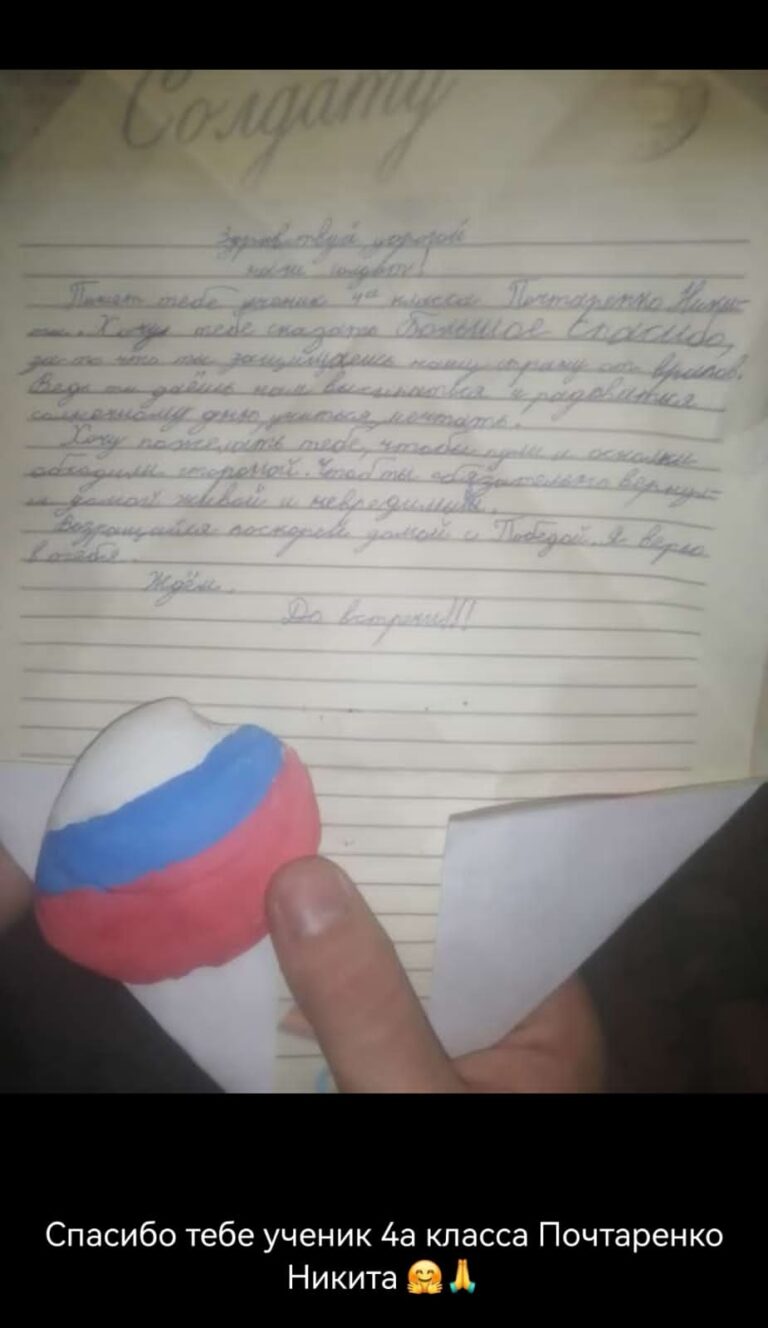 Солдату
Здравствуй дорогой
наш солдат!
Пишет тебе ученик 4а класса Почтаренко Ники-
та. Хочу тебе сказать Большое Спасибо,
за то что ты защищаешь нашу страну от врагов.
Ведь ты даёшь нам высыпаться и радоваться
солнечному дню, учиться, мечтать.
Хочу пожелать тебе, чтобы пули и осколки
обходили стороной. Чтоб ты обязательно вернул-
ся домой живой и невредимый.
Возращайся поскорей домой с Победой. Я верю
в тебя.
Ждём.
До встречи!!!
Спасибо тебе ученик 4а класса Почтаренко
Никита 🤗🙏